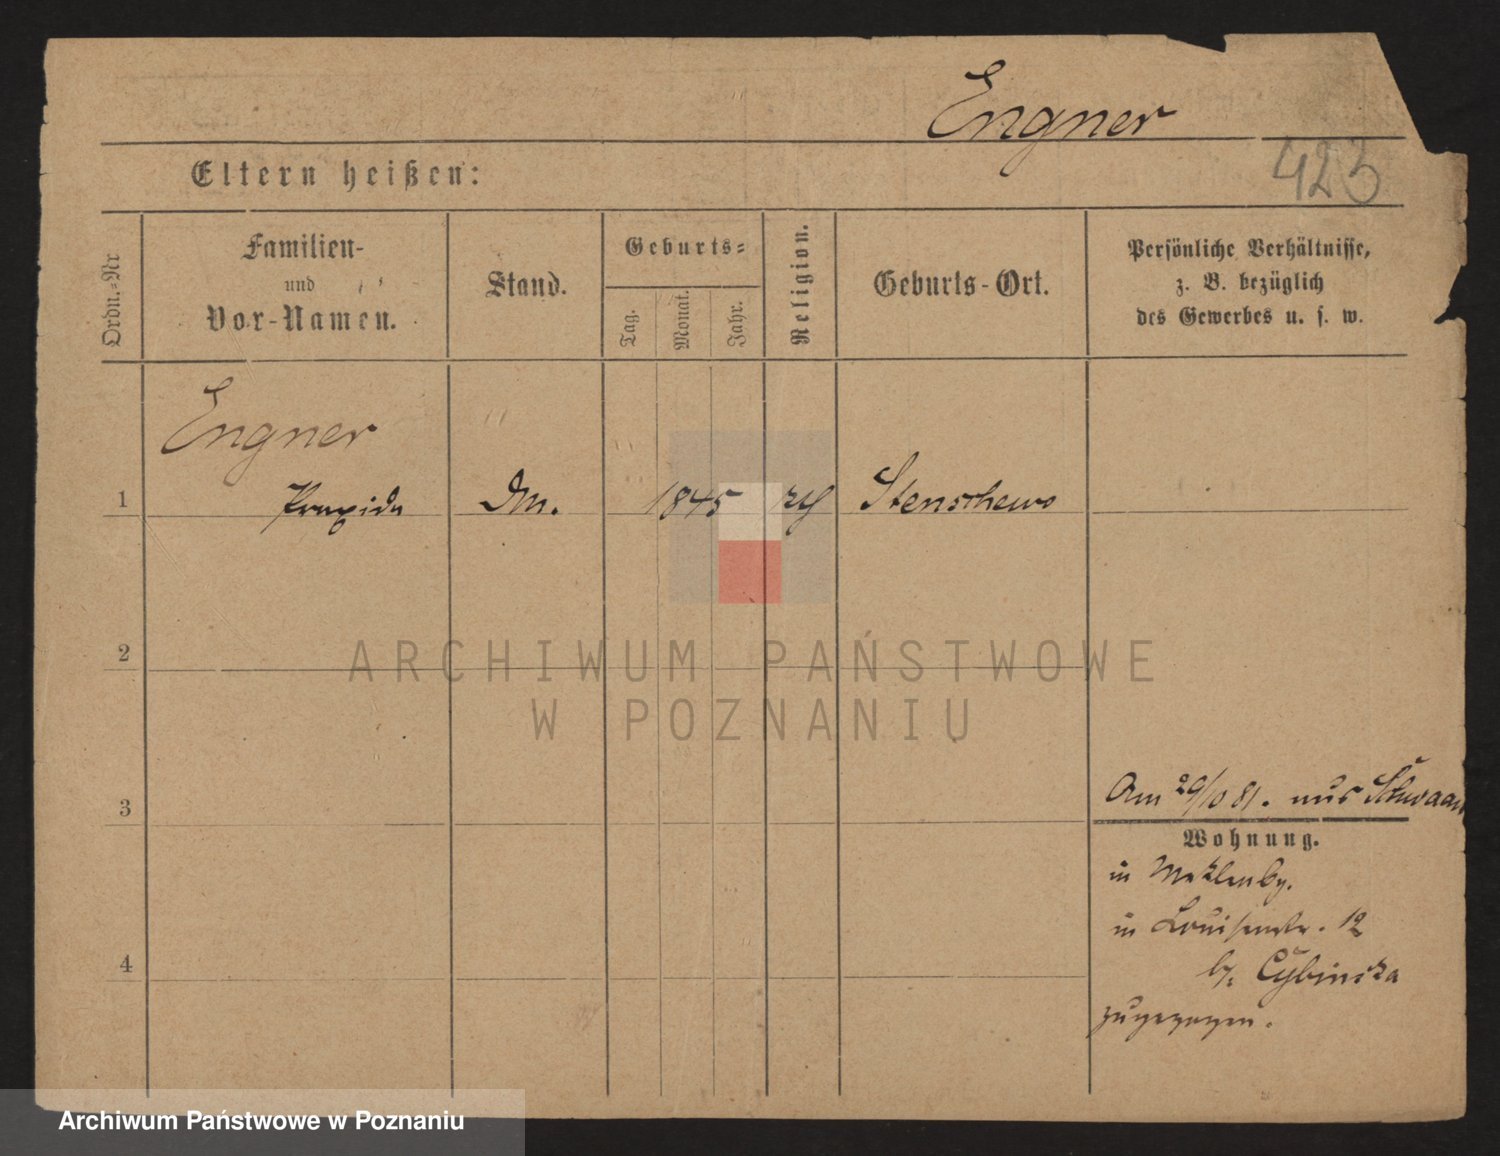 Engner
423
Eltern heißen:
Ordn.=Nr
Familien-
und
Vor-Namen.
Stand.
Geburts=
Tag.
Monat.
Jahr.
Religion.
Geburts-Ort.
Persönliche Verhältnisse,
z. B. bezüglich
des Gewerbes u. s. w.
Engner
1 Praxida Dm. 1845 Stenschewo
2
ARCHIWUM PAŃSTWOWE
W POZNANIU
3
Am 29/10 81. aus Schwaan
Wohnung.
in Meklenbg.
in Louisenstr. 12
b/. Cybinska
4
zugezogen.
Archiwum Państwowe w Poznaniu